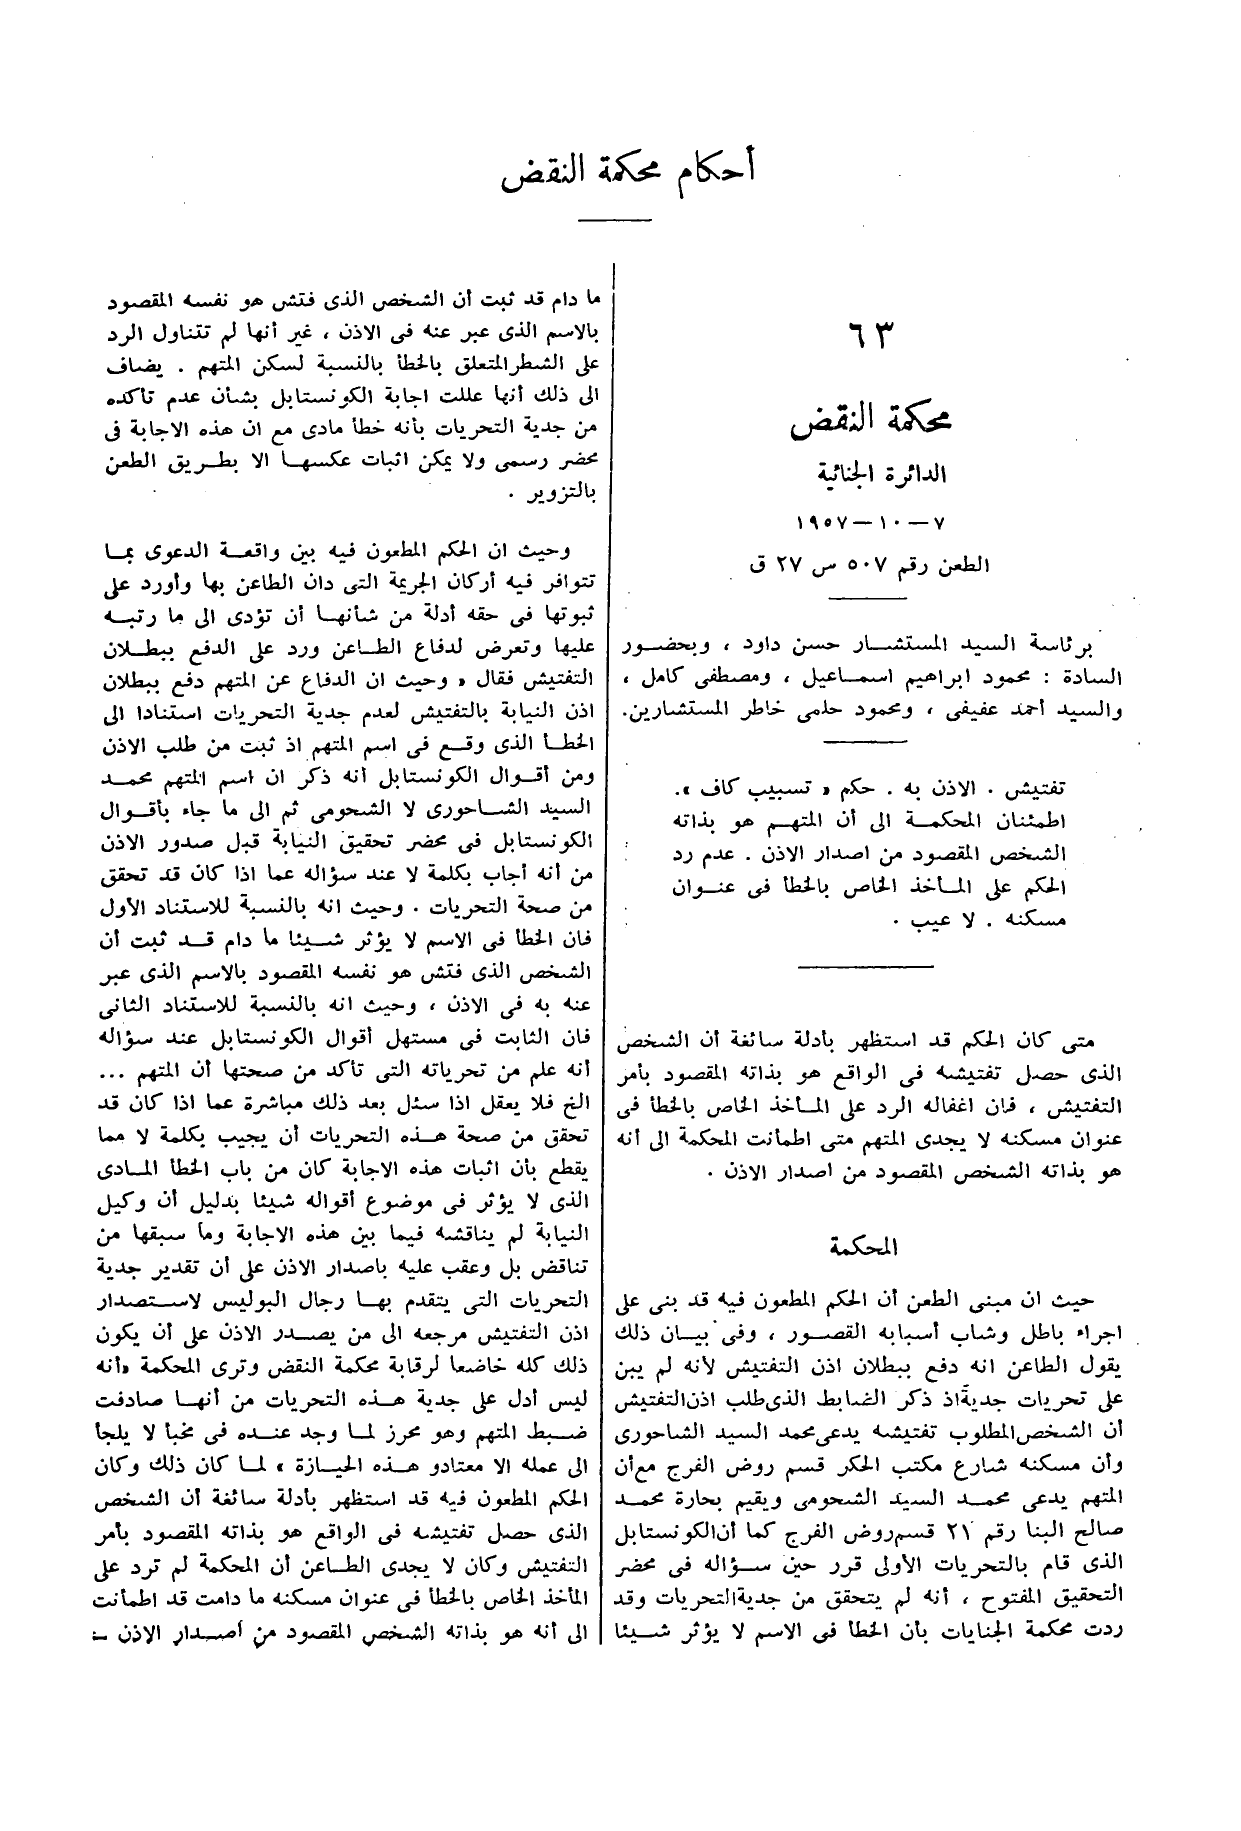 أحكام محكمة النقض
٦٣
محكمة النقض
الدائرة الجنائية
٧ — ١٠ — ١٩٥٧
الطعن رقم ٥٠٧ س ٢٧ ق
برئاسة السيد المستشار حسن داود ، وبحضور
السادة : محمود ابراهيم اسماعيل ، ومصطفى كامل ،
والسيد أحمد عفيفى ، ومحمود حلمى خاطر المستشارين.
تفتيش . الاذن به . حكم « تسبيب كاف ».
اطمئنان المحكمة الى أن المتهم هو بذاته
الشخص المقصود من اصدار الاذن . عدم رد
الحكم على المأخذ الخاص بالخطأ فى عنوان
مسكنه . لا عيب .
متى كان الحكم قد استظهر بأدلة سائغة أن الشخص
الذى حصل تفتيشه فى الواقع هو بذاته المقصود بأمر
التفتيش ، فان اغفاله الرد على المأخذ الخاص بالخطأ فى
عنوان مسكنه لا يجدى المتهم متى اطمأنت المحكمة الى أنه
هو بذاته الشخص المقصود من اصدار الاذن .
المحكمة
حيث ان مبنى الطعن أن الحكم المطعون فيه قد بنى على
اجراء باطل وشاب أسبابه القصور ، وفى بيان ذلك
يقول الطاعن انه دفع ببطلان اذن التفتيش لأنه لم يبن
على تحريات جدية اذ ذكر الضابط الذى طلب اذن التفتيش
أن الشخص المطلوب تفتيشه يدعى محمد السيد الشاحورى
وأن مسكنه شارع مكتب الحكر قسم روض الفرج مع أن
المتهم يدعى محمد السيد الشحومى ويقيم بحارة محمد
صالح البنا رقم ٢١ قسم روض الفرج كما أن الكونستابل
الذى قام بالتحريات الأولى قرر حين سؤاله فى محضر
التحقيق المفتوح ، أنه لم يتحقق من جدية التحريات وقد
ردت محكمة الجنايات بأن الخطأ فى الاسم لا يؤثر شيئا
ما دام قد ثبت أن الشخص الذى فتش هو نفسه المقصود
بالاسم الذى عبر عنه فى الاذن ، غير أنها لم تتناول الرد
على الشطر المتعلق بالخطأ بالنسبة لسكن المتهم . يضاف
الى ذلك أنها عللت اجابة الكونستابل بشأن عدم تأكده
من جدية التحريات بأنه خطأ مادى مع ان هذه الاجابة فى
محضر رسمى ولا يمكن اثبات عكسها الا بطريق الطعن
بالتزوير .
وحيث ان الحكم المطعون فيه بين واقعة الدعوى بما
تتوافر فيه أركان الجريمة التى دان الطاعن بها وأورد على
ثبوتها فى حقه أدلة من شأنها أن تؤدى الى ما رتبه
عليها وتعرض لدفاع الطاعن ورد على الدفع ببطلان
التفتيش فقال « وحيث ان الدفاع عن المتهم دفع ببطلان
اذن النيابة بالتفتيش لعدم جدية التحريات استنادا الى
الخطأ الذى وقع فى اسم المتهم اذ ثبت من طلب الاذن
ومن أقوال الكونستابل أنه ذكر ان اسم المتهم محمد
السيد الشاحورى لا الشحومى ثم الى ما جاء بأقوال
الكونستابل فى محضر تحقيق النيابة قبل صدور الاذن
من أنه أجاب بكلمة لا عند سؤاله عما اذا كان قد تحقق
من صحة التحريات . وحيث انه بالنسبة للاستناد الأول
فان الخطأ فى الاسم لا يؤثر شيئا ما دام قد ثبت أن
الشخص الذى فتش هو نفسه المقصود بالاسم الذى عبر
عنه به فى الاذن ، وحيث انه بالنسبة للاستناد الثانى
فان الثابت فى مستهل أقوال الكونستابل عند سؤاله
أنه علم من تحرياته التى تأكد من صحتها أن المتهم ...
الخ فلا يعقل اذا سئل بعد ذلك مباشرة عما اذا كان قد
تحقق من صحة هذه التحريات أن يجيب بكلمة لا مما
يقطع بأن اثبات هذه الاجابة كان من باب الخطأ المادى
الذى لا يؤثر فى موضوع أقواله شيئا بدليل أن وكيل
النيابة لم يناقشه فيما بين هذه الاجابة وما سبقها من
تناقض بل وعقب عليه باصدار الاذن على أن تقدير جدية
التحريات التى يتقدم بها رجال البوليس لاستصدار
اذن التفتيش مرجعه الى من يصدر الاذن على أن يكون
ذلك كله خاضعا لرقابة محكمة النقض وترى المحكمة «أنه
ليس أدل على جدية هذه التحريات من أنها صادفت
ضبط المتهم وهو محرز لما وجد عنده فى مخبأ لا يلجأ
الى عمله الا معتادو هذه الحيازة » لما كان ذلك وكان
الحكم المطعون فيه قد استظهر بأدلة سائغة أن الشخص
الذى حصل تفتيشه فى الواقع هو بذاته المقصود بأمر
التفتيش وكان لا يجدى الطاعن أن المحكمة لم ترد على
المأخذ الخاص بالخطأ فى عنوان مسكنه ما دامت قد اطمأنت
الى أنه هو بذاته الشخص المقصود من أصدار الاذن –